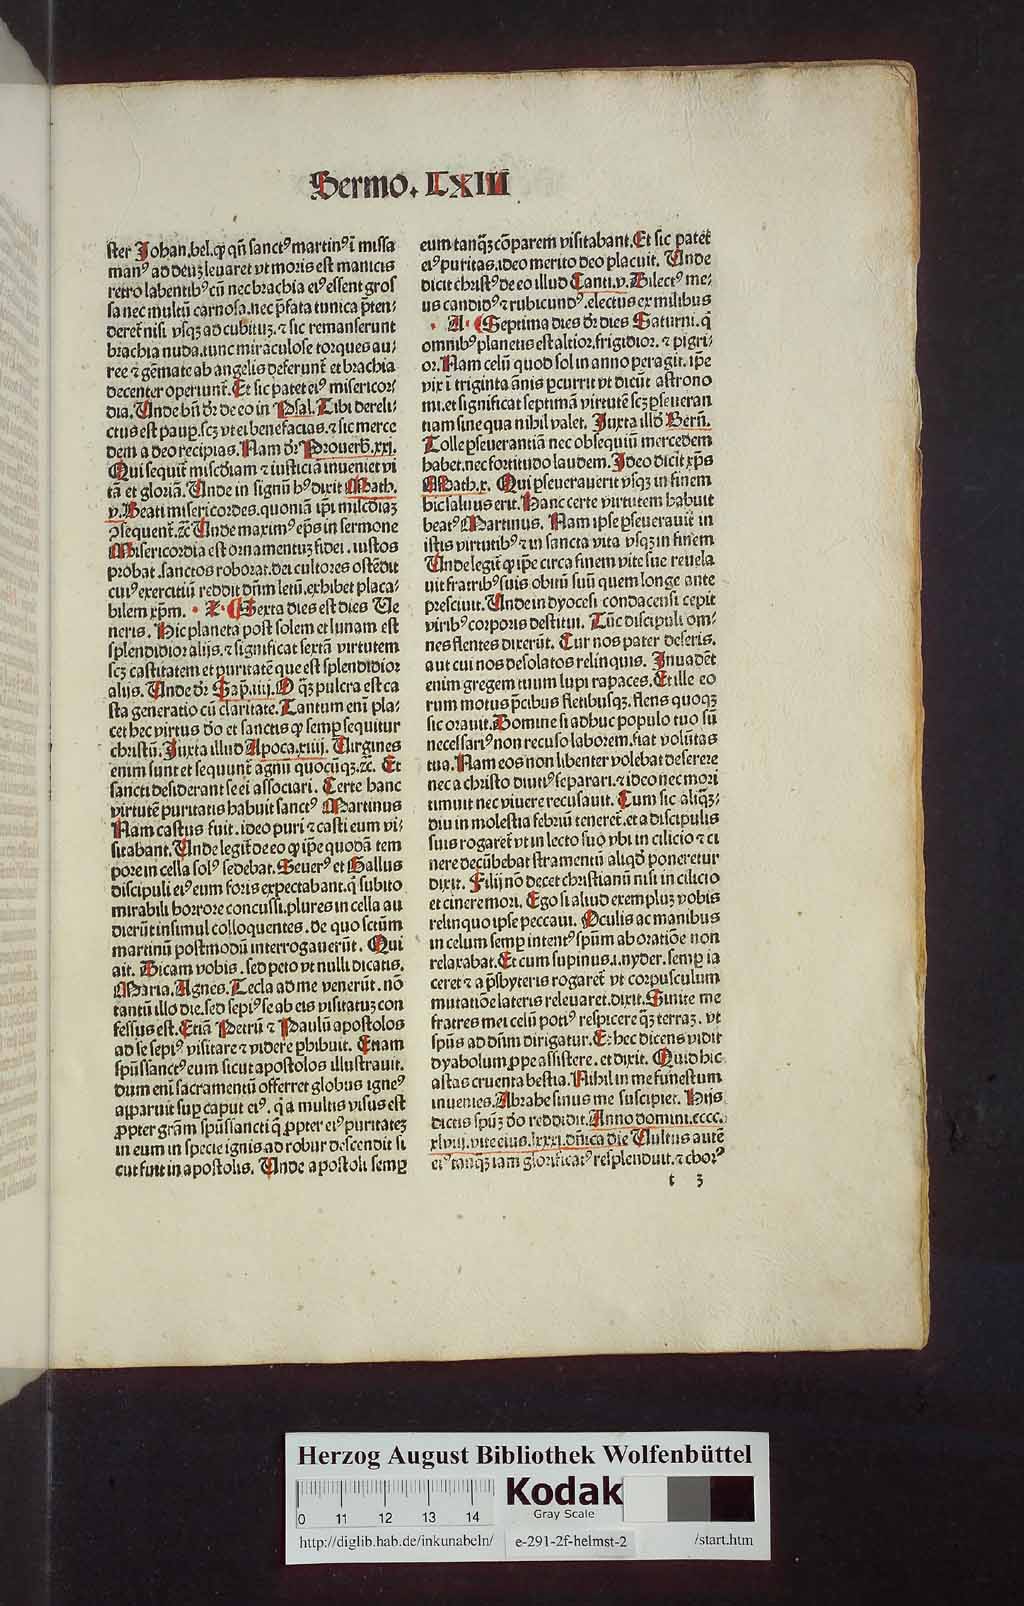 Sermo. LXIII
ster Johan.bel.qꝙ qn̄ sanctꝰ martinꝰ ī missa
manꝰ ad deuꝫ leuaret vt moris est manicis
retro labentibꝰ cū nec brachia eiꝰ essent gros
sa nec multū carnosa.nec p̄fata tunica p̄ten⸗
deret̄ nisi vsqꝫ ad cubituꝫ.⁊ sic remanserunt
brachia nuda.tunc miraculose torques au⸗
ree ⁊ gēmate ab angelis deferunt̄ et brachia
decenter operiunt̄. Et sic patet eiꝰ misericor⸗
dia. Unde bn̄ dr̄ de eo in Psal. Tibi dereli⸗
ctus est paup̄.scꝫ vt ei benefacias.⁊ sic merce
dem a deo recipias. Nam dr̄ Prouerb̄.xxi.
Qui sequit̄ misc̄diam ⁊ iusticiā inueniet vi
tā et gloriā. Unde in signū hꝰ dixit Math.
v. Beati misericordes.quoniā ip̄i mīcdiaꝫ
ꝯsequent̄.⁊c̄ Unde maximꝰ ep̄s in sermone
Misericordia est ornamentuꝫ fidei.iustos
probat.sanctos roborat.dei cultores ostēdit
cuiꝰ exercitiū reddit dn̄m letū.exhibet placa⸗
bilem xp̄m. Z. Sexta dies est dies Ue
neris. Hic planeta post solem et lunam est
splendidior alijs.⁊ significat sextā virtutem
scꝫ castitatem et puritatē que est splendidior
alijs. Unde dr̄ Sap̄.iiij. O qꝫ pulcra est ca
sta generatio cū claritate. Tantum enī pla⸗
cet hec virtus do et sanctis qꝙ semp̄ sequitur
christū. Juxta illud Apoca.xiiij. Uirgines
enim sunt et sequunt̄ agnū quocūqꝫ.⁊c̄. Et
sancti desiderant se ei associari. Certe hanc
virtutē puritatis habuit sanctꝰ Martinus
Nam castus fuit.ideo puri ⁊ casti eum vi⸗
sitabant. Unde legit̄ de eo qꝙ ip̄e quodā tem
pore in cella solꝰ sedebat. Seuerꝰ et Gallus
discipuli eiꝰ eum foris expectabant.q̄ subito
mirabili horrore concussi.plures in cella au
dierūt insimul colloquentes. de quo sctūm
martinū postmodū interrogauerūt. Qui
ait. Dicam vobis. sed peto vt nulli dicatis.
Maria. Agnes. Tecla ad me venerūt. nō
tantū illo die.sed sepiꝰ se ab eis visitatuꝫ con
fessus est. Etiā Petrū ⁊ Paulū apostolos
ad se sepiꝰ visitare ⁊ videre phibuit. Etiam
spūssanctꝰ eum sicut apostolos illustrauit.
dum enī sacramentū offerret globus igneꝰ
apparuit sup̄ caput eiꝰ. q̄ a multis visus est
ꝓpter grām spūssancti q̄ ꝓpter eiꝰ puritateꝫ
in eum in specie ignis ad robur descendit si
cut fuit in apostolis. Unde apostoli semp̄
eum tanqꝫ cōparem visitabant. Et sic patet
eiꝰ puritas.ideo merito deo placuit. Unde
dicit christꝰ de eo illud Canti.v. Dilectꝰ me⸗
us candidꝰ ⁊ rubicundꝰ.electus ex milibus
A. Septima dies dr̄ dies Saturni. q̄
omnibꝰ planetis est altior.frigidior. ⁊ pigri⸗
or. Nam celū quod sol in anno peragit. ip̄e
vix ī triginta ānis pcurrit vt dicūt astrono
mi.et significat septimā virtutē scꝫ pseueran
tiam sine qua nihil valet. Juxta illd̄ Bern̄.
Tolle pseuerantiā nec obsequiū mercedem
habet.nec fortitudo laudem. Ideo dicit xp̄s
Math.x. Qui pseuerauerit vsqꝫ in finem
hic saluus erit. Hanc certe virtutem habuit
beatꝰ Martinus. Nam ipse pseuerauit in
istis virtutibꝰ ⁊ in sancta vita vsqꝫ in finem
Unde legit̄ qꝙ ip̄e circa finem vite sue reuela
uit fratribꝰ suis obitū suū quem longe ante
presciuit. Unde in dyocesi condacensi cepit
viribꝰ corporis destitui. Tūc discipuli om⸗
nes flentes dixerūt. Cur nos pater deseris.
aut cui nos desolatos relinquis. Inuadēt
enim gregem tuum lupi rapaces. Et ille eo
rum motus p̄cibus fletibusqꝫ.flens quoqꝫ
sic orauit. Domine si adhuc populo tuo sū
necessariꝰ non recuso laborem.fiat volūtas
tua. Nam eos non libenter volebat deserere
nec a christo diutiꝰ separari.⁊ ideo nec mori
timuit nec viuere recusauit. Cum sic aliqꝫ⸗
diu in molestia febriū teneret̄.et a discipulis
suis rogaret̄ vt in lecto suo vbi in cilicio ⁊ ci
nere decūbebat stramentū aliqd̄ poneretur
dixit. Filij nō decet christianū nisi in cilicio
et cinere mori. Ego si aliud exempluꝫ vobis
relinquo ipse peccaui. Oculis ac manibus
in celum semp̄ intentꝰ spūm ab oratiōe non
relaxabat. Et cum supinus.i.nyder.semp̄ ia
ceret ⁊ a p̄sbyteris rogaret̄ vt corpusculum
mutatiōe lateris releuaret.dixit. Sinite me
fratres mei celū potiꝰ respicere qꝫ terraꝫ. vt
spūs ad dn̄m dirigatur. Et hec dicens vidit
dyabolum ꝓpe assistere. et dixit. Quid hic
astas cruenta bestia. Nihil in me funestum
inuenies. Abrahe sinus me suscipiet. Hijs
dictis spūꝫ do reddidit. Anno domini.cccc.
xlviij.vite eius.lxxxi.dn̄ica die Uultus autē
eiꝰ tanqꝫ iam glorificatꝰ resplenduit.⁊ chorꝰ
t 3
Herzog August Bibliothek Wolfenbüttel
0 11 12 13 14
Kodak
Gray Scale
http://diglib.hab.de/inkunabeln/ e-291-2f-helmst-2 /start.htm